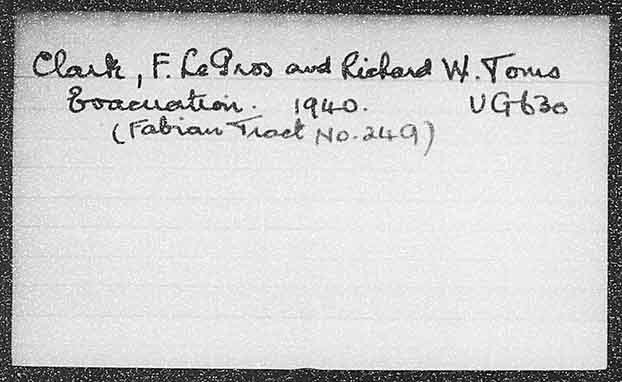 Clark, F. Le Gros and Richard W. Toms
Evacuation. 1940. UG630
(Fabian Tract No. 249)